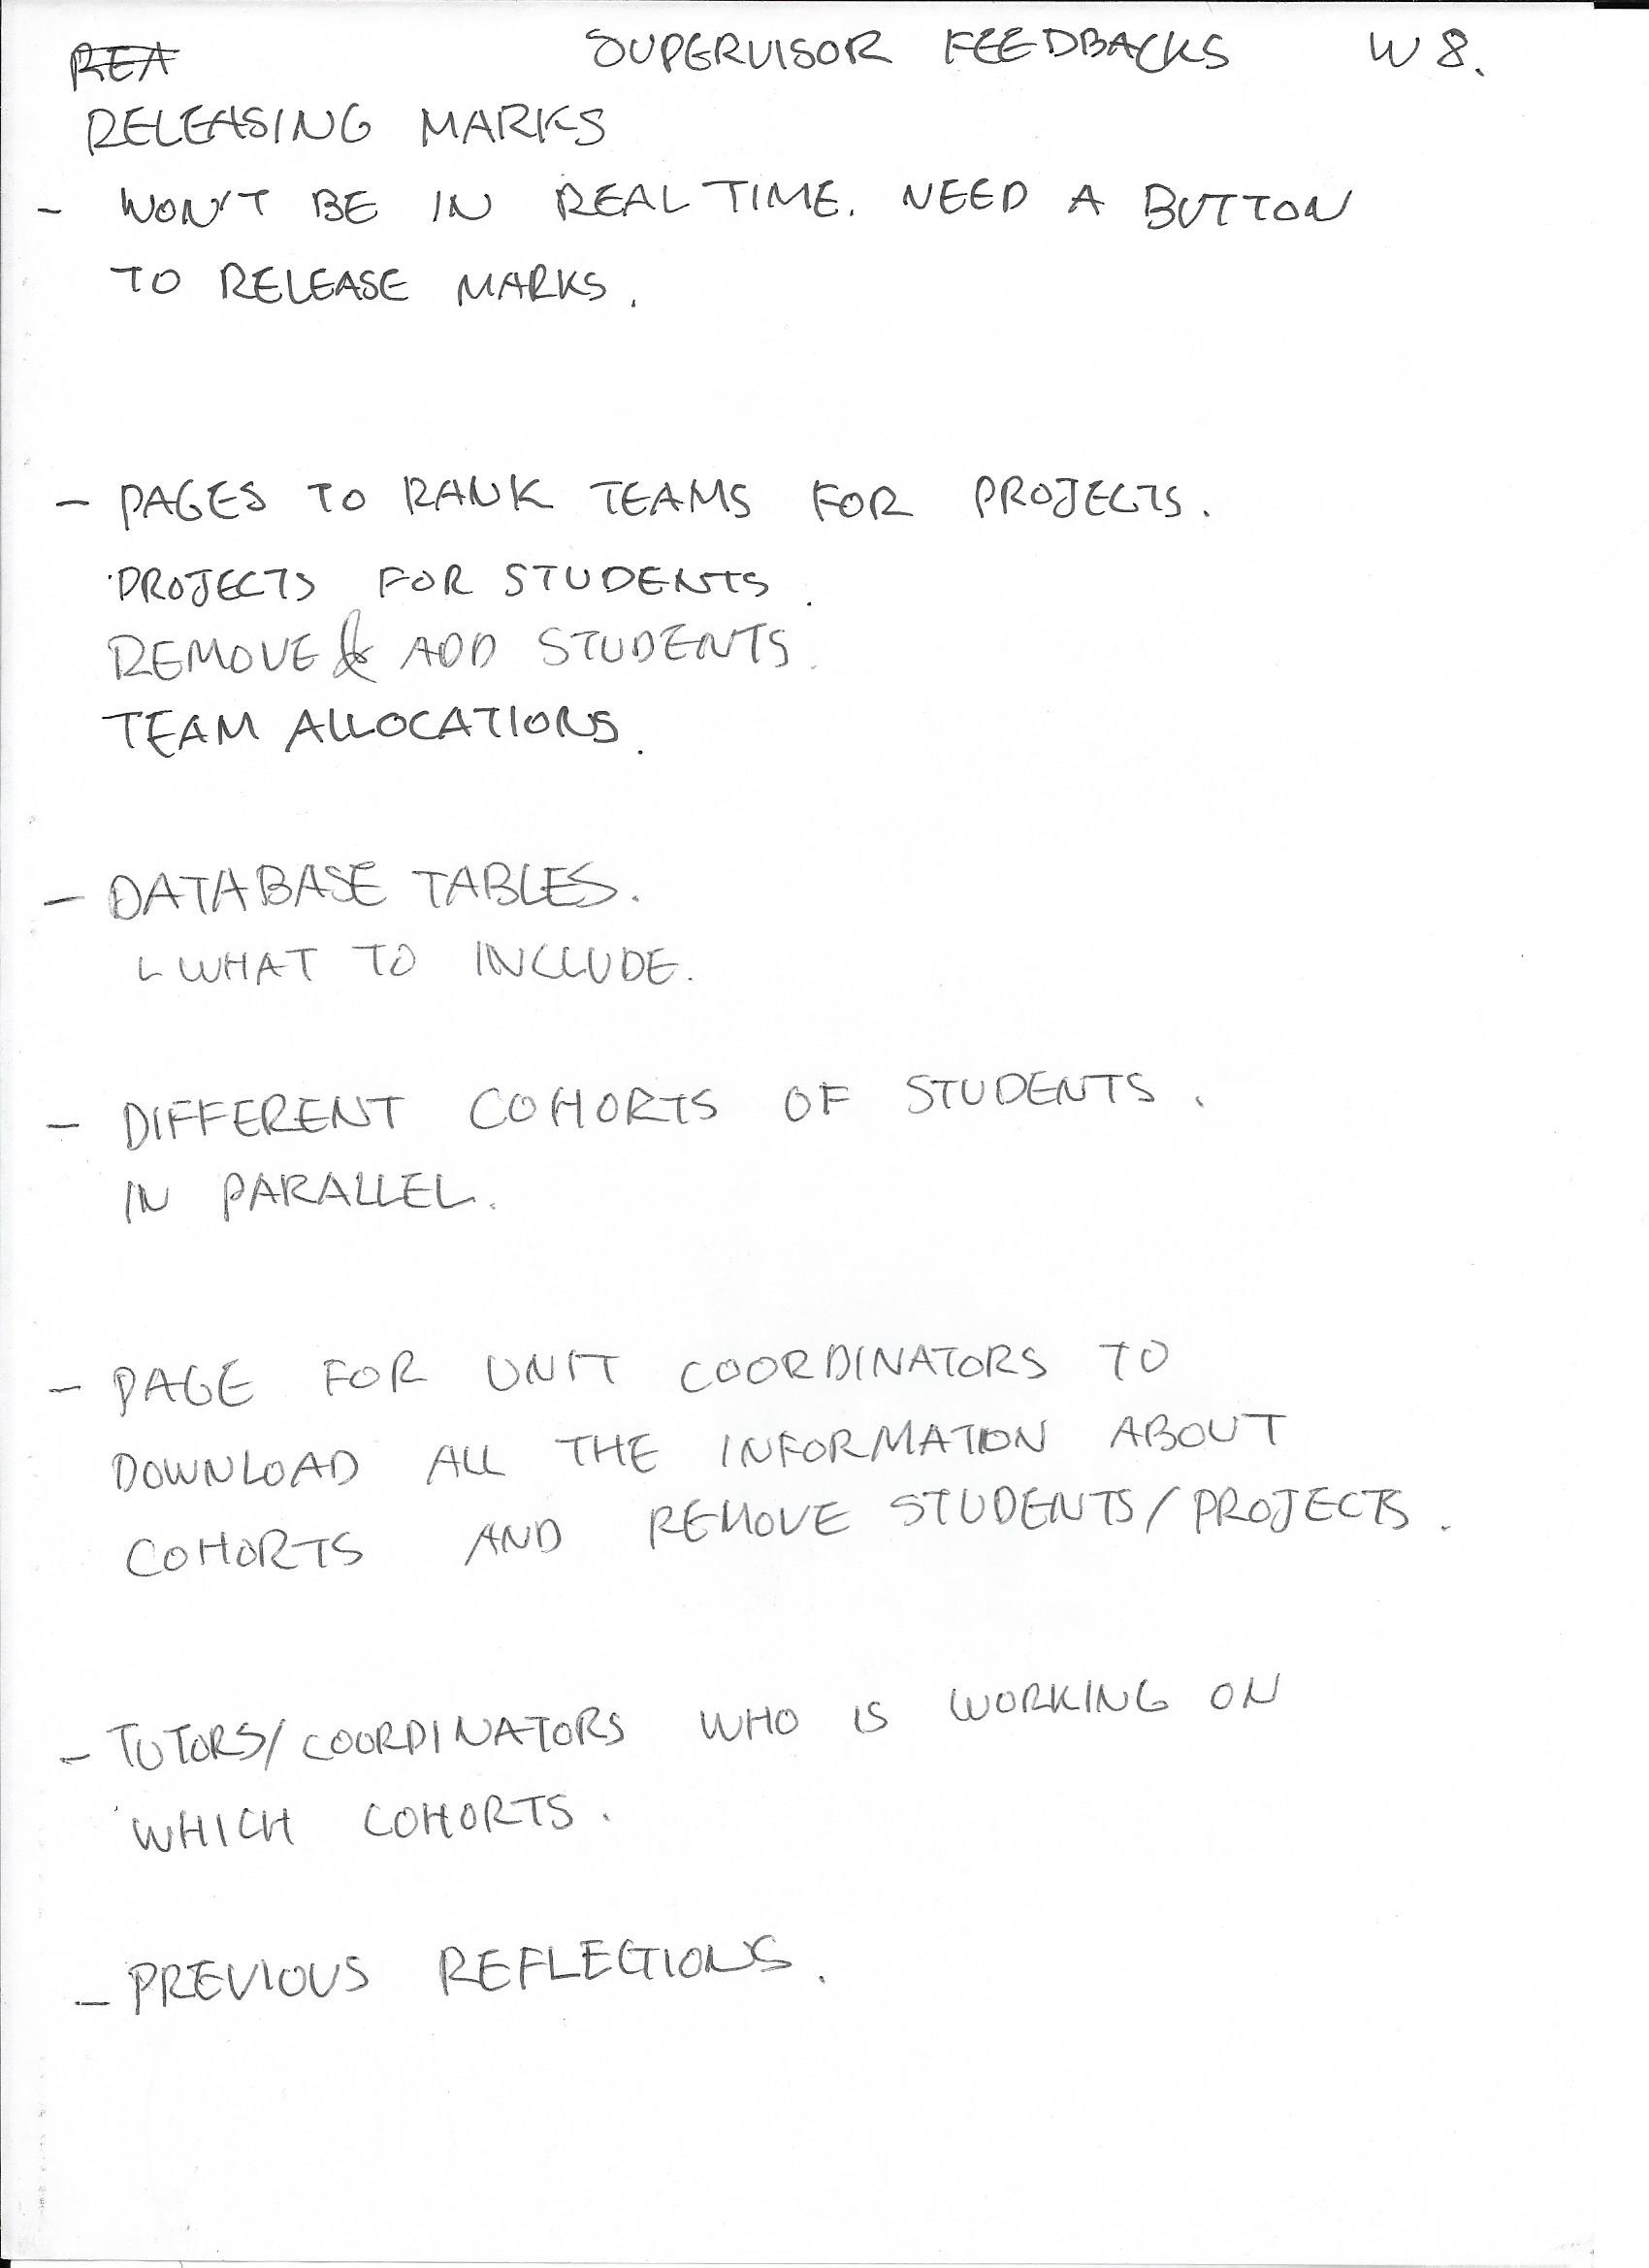 REA SUPERVISOR FEEDBACKS W8.
RELEASING MARKS
- WON'T BE IN REAL TIME. NEED A BUTTON
TO RELEASE MARKS.
- PAGES TO RANK TEAMS FOR PROJECTS.
PROJECTS FOR STUDENTS.
REMOVE & ADD STUDENTS.
TEAM ALLOCATIONS.
- DATABASE TABLES.
L WHAT TO INCLUDE.
- DIFFERENT COHORTS OF STUDENTS.
IN PARALLEL.
- PAGE FOR UNIT COORDINATORS TO
DOWNLOAD ALL THE INFORMATION ABOUT
COHORTS AND REMOVE STUDENTS/PROJECTS.
- TUTORS/COORDINATORS WHO IS WORKING ON
WHICH COHORTS.
- PREVIOUS REFLECTIONS.